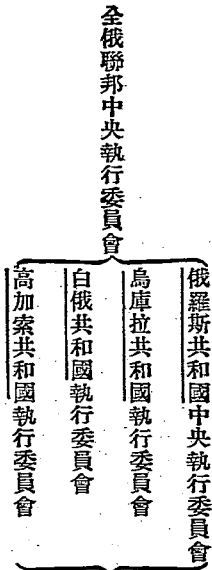 全俄聯邦中央執行委員會
俄羅斯共和國中央執行委員會
烏庫拉共和國執行委員會
白俄共和國執行委員會
高加索共和國執行委員會